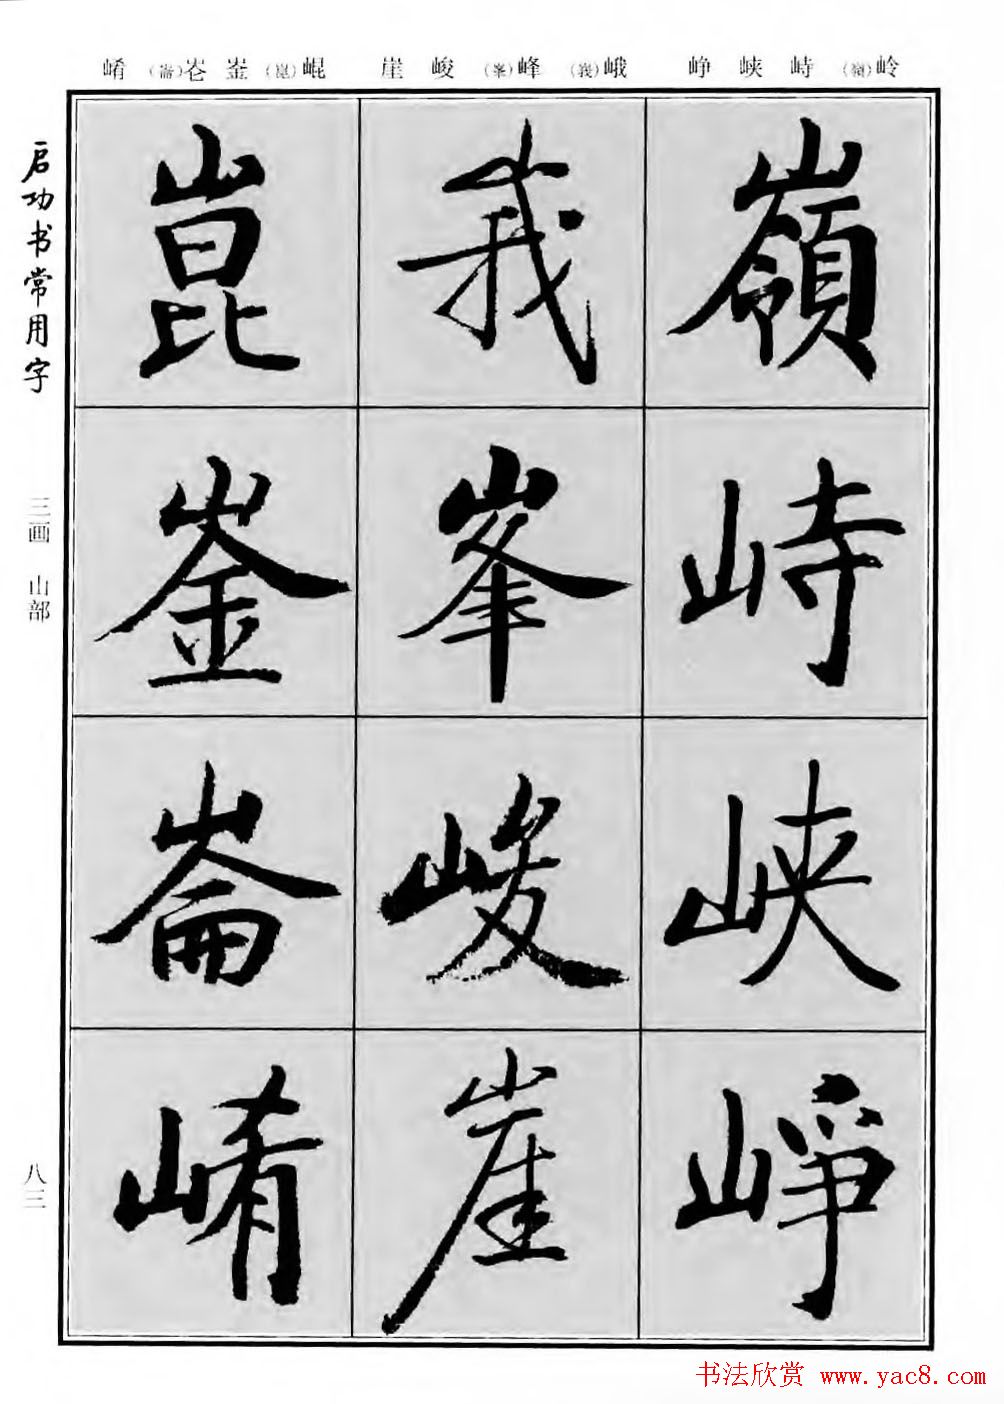 岭(嶺) 峙 峡 峥 峨(峩) 峰(峯) 峻 崖 崐(崑) 崟 (崙) 崤
嶺峙峡峥
峩峯峻崖
崑崟崙崤
启功书常用字
三画 山部
八三
书法欣赏 www.yac8.com